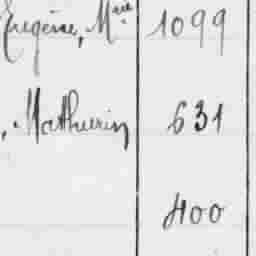 Eugène, Mce 1099
, Mathurin 631
400